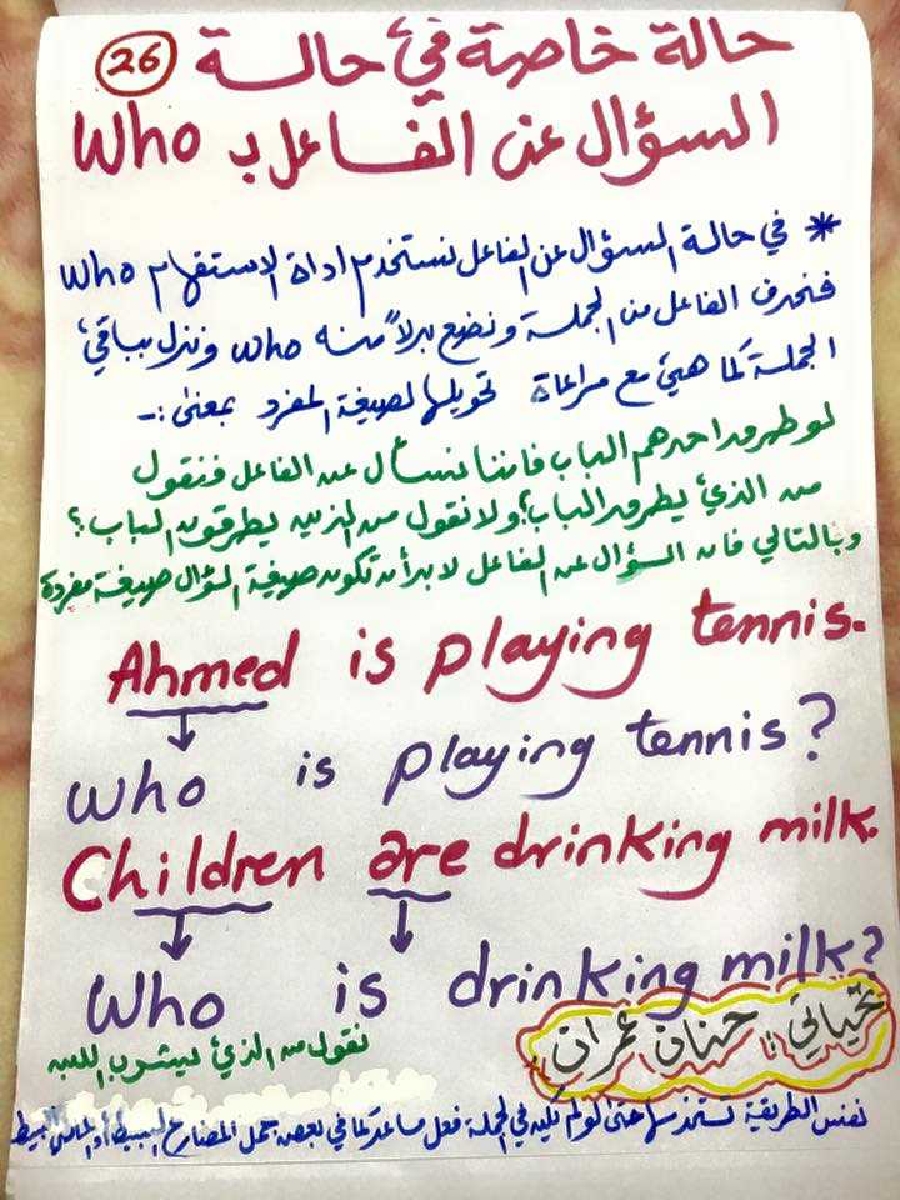 حالة خاصة في حالة 26
السؤال عن الفاعل بـ Who
* في حالة السؤال عن الفاعل نستخدم اداة الاستفهام Who
فنحذف الفاعل من الجملة ونضع بدلاً منه Who وننزل بباقي
الجملة كما هي مع مراعاة تحويلها لصيغة المفرد بمعنى :-
لو طرق احدهم الباب فاننا نسأل عن الفاعل فنقول
من الذي يطرق الباب؟ ولا نقول من الذين يطرقون الباب؟
وبالتالي فان السؤال عن الفاعل لابد أن تكون صيغة السؤال صيغة مفردة
Ahmed is playing tennis.
Who is playing tennis?
Children are drinking milk.
Who is drinking milk?
نقول من الذي يشرب اللبن
تحياتي: حنان عمران
نفس الطريقة نستخدمها حتى لو لم يكن في الجملة فعل مساعد كما في بعض جمل المضارع البسيط أو الماضي البسيط